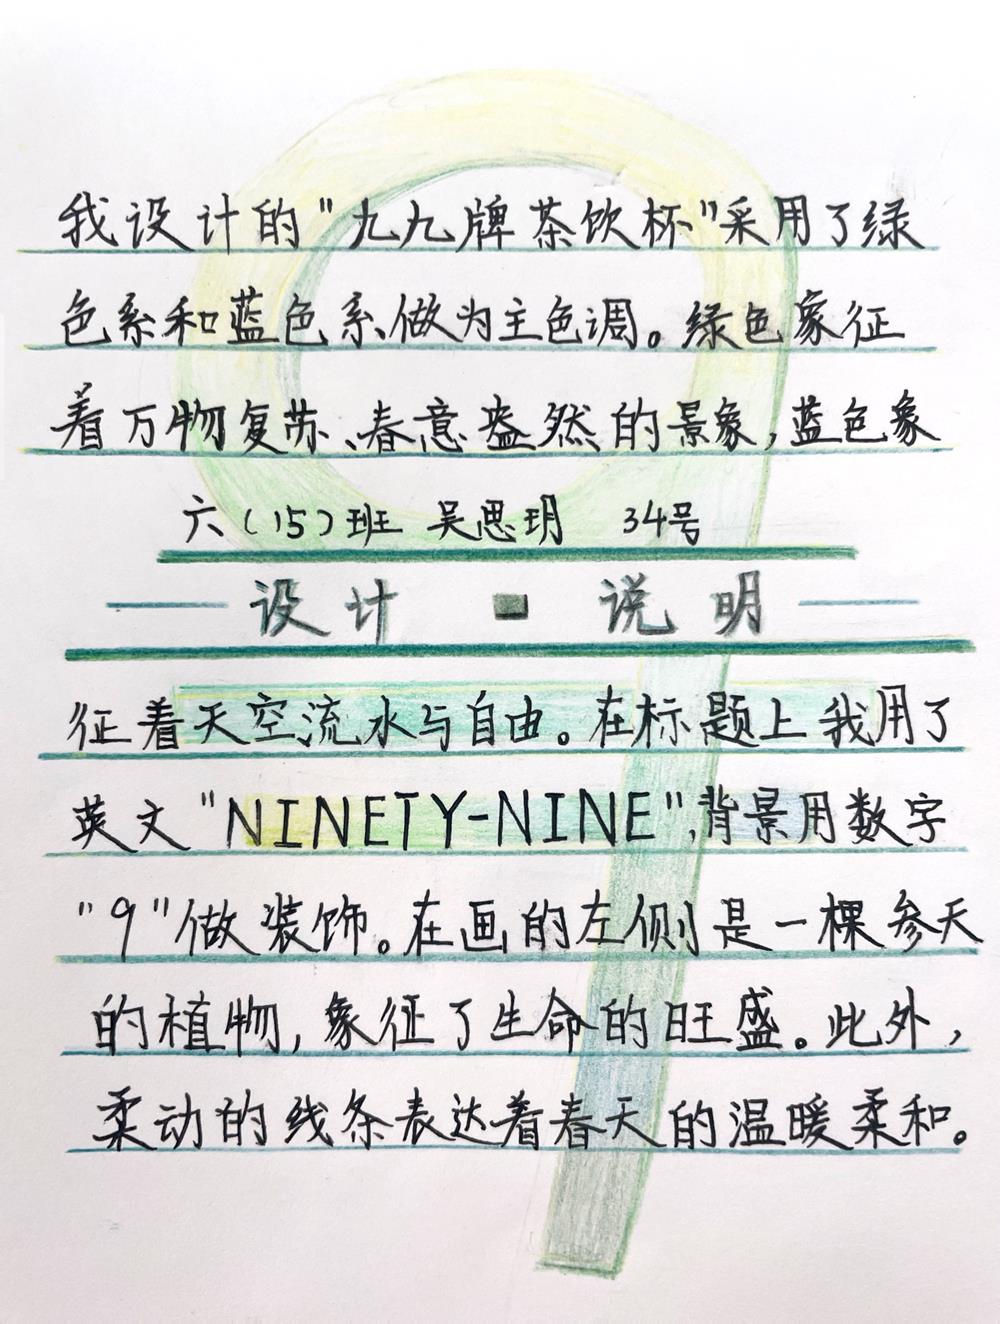 我设计的"九九牌茶饮杯"采用了绿
色系和蓝色系做为主色调。绿色象征
着万物复苏、春意盎然的景象,蓝色象
六(15)班 吴思玥 34号
设计 说明
征着天空流水与自由。在标题上我用了
英文"NINETY-NINE",背景用数字
"9"做装饰。在画的左侧是一棵参天
的植物,象征了生命的旺盛。此外,
柔动的线条表达着春天的温暖柔和。